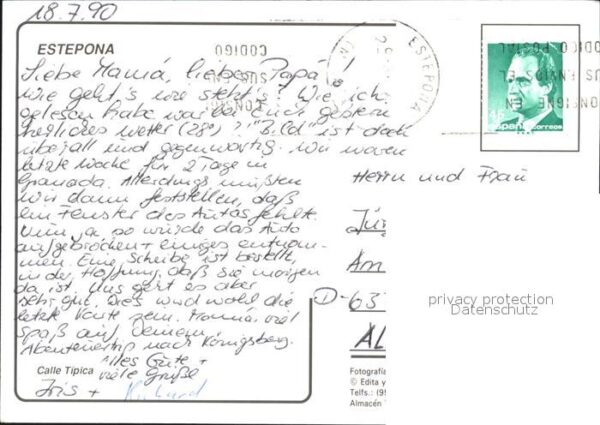 18.7.90
ESTEPONA
Liebe Mamá, lieber Papá!
wie geht's wie steht's? Wie ich
gelesen habe war bei Euch gestern
herrliches Wetter (28°)? "Bild" ist doch
überall und gegenwärtig. Wir waren
letzte Woche für 2 Tage in
Granada. Allerdings mußten
wir dann feststellen, daß
ein Fenster des Autos fehlte.
so wurde das Auto
aufgebrochen + einiges entnom-
men. Eine Scheibe ist bestellt,
in der Hoffnung, daß sie morgen
da ist. Uns geht es aber
sehr gut. Dies wird wohl die
letzte Karte sein. Mamá, viel
Spaß auf Deinem
Abenteuertrip nach Königsberg.
Alles Gute +
viele Grüße
Iris + Richard
Calle Típica
CODIGO
POSTAL
ESTEPONA
CODIGO POSTAL
SUS ENVIOS EL
CONSIGNE EN
45
España correos
Herrn und Frau
Jür
Am
D-63
AL
privacy protection
Datenschutz
Fotografía
© Edita y
Telfs.: (95
Almacén